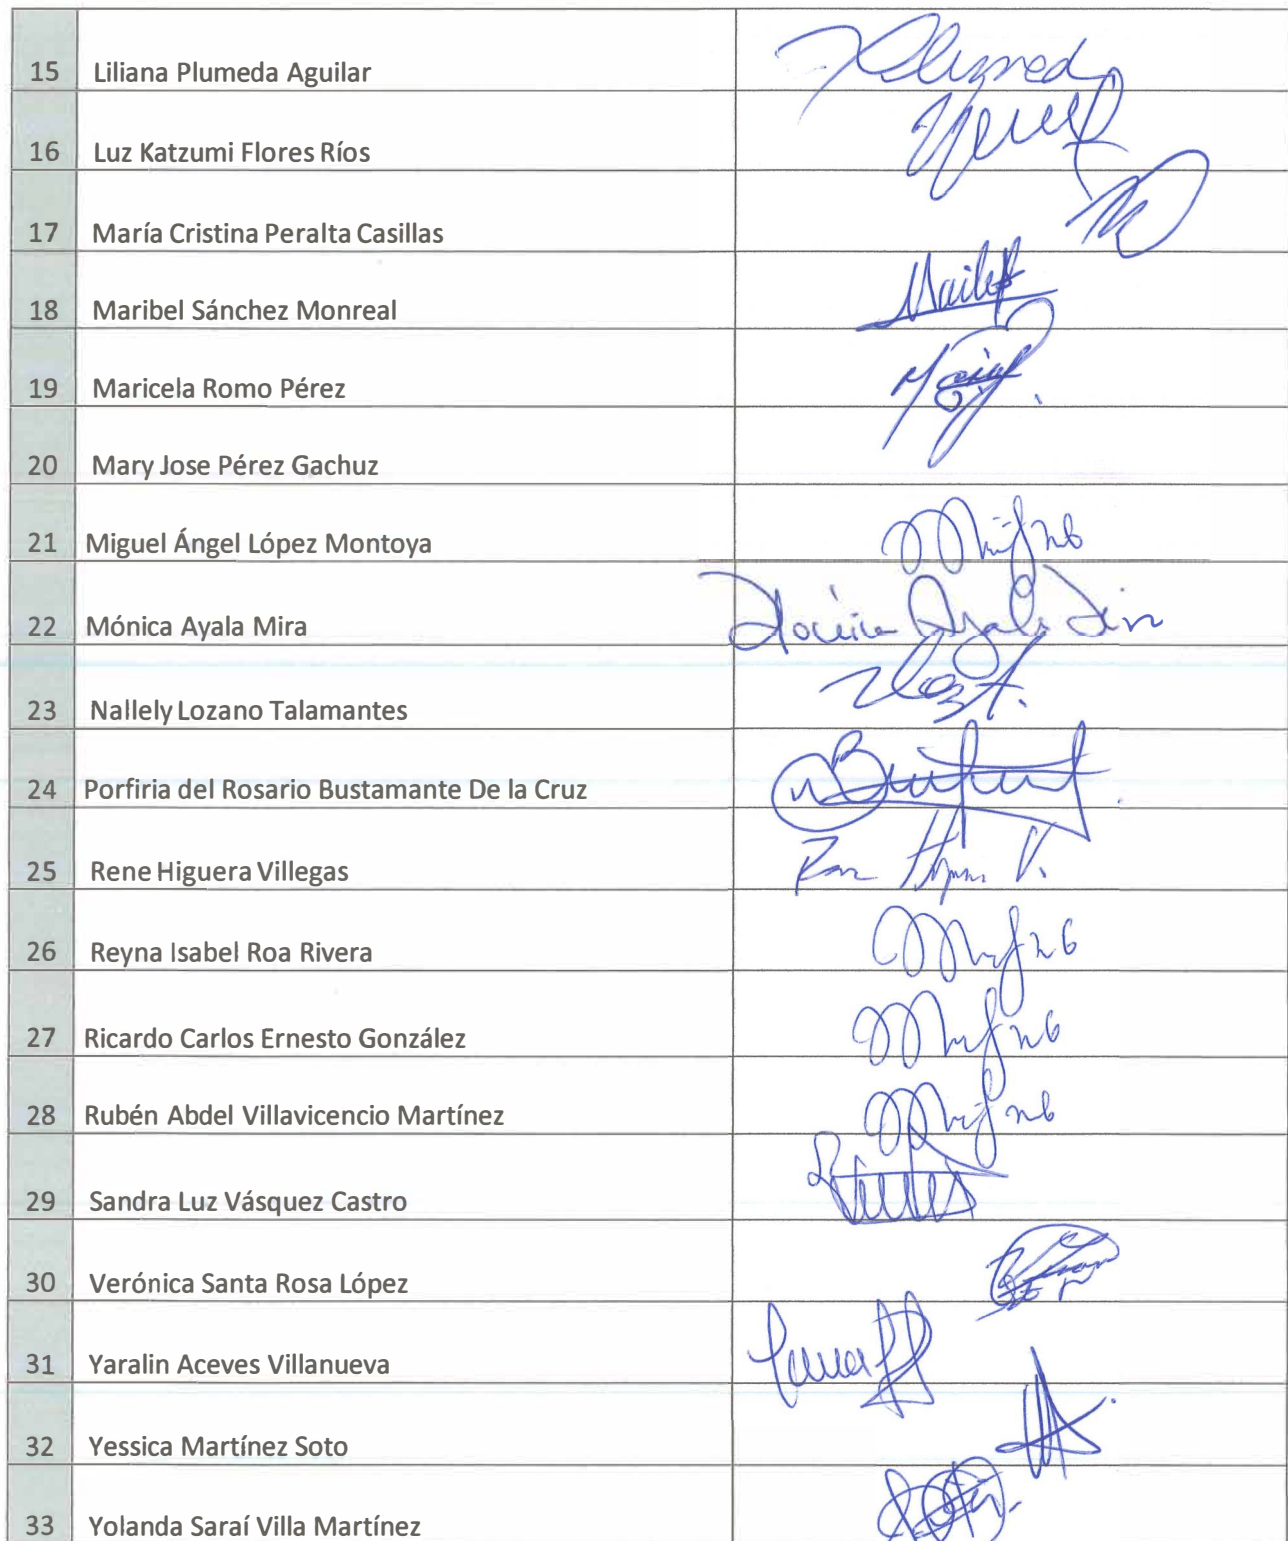 15 Liliana Plumeda Aguilar
16 Luz Katzumi Flores Ríos
17 María Cristina Peralta Casillas
18 Maribel Sánchez Monreal
19 Maricela Romo Pérez
20 Mary Jose Pérez Gachuz
21 Miguel Ángel López Montoya
22 Mónica Ayala Mira
23 Nallely Lozano Talamantes
24 Porfiria del Rosario Bustamante De la Cruz
25 Rene Higuera Villegas
26 Reyna Isabel Roa Rivera
27 Ricardo Carlos Ernesto González
28 Rubén Abdel Villavicencio Martínez
29 Sandra Luz Vásquez Castro
30 Verónica Santa Rosa López
31 Yaralin Aceves Villanueva
32 Yessica Martínez Soto
33 Yolanda Saraí Villa Martínez